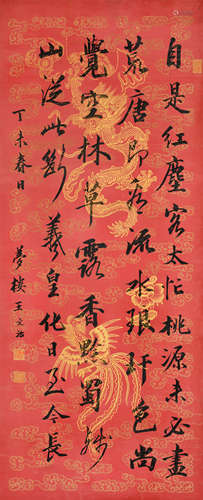 自是紅塵客太忙桃源未必盡
荒唐即看流水琅玕色尚
覺空林草露香黔蜀殘
山從此斷羲皇化日至今長
丁未春日 夢樓王文治